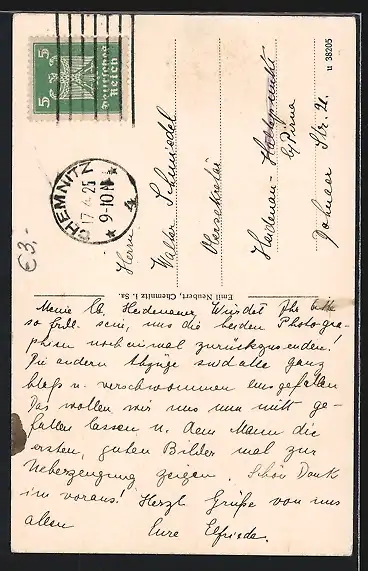 5 Deutsches Reich 5
CHEMNITZ
17.4.25
9-10 N
4
u 38205
€3,-
Herrn
Walter Schmiedel
Obersekretär
Heidenau-
b/Pirna
Dohnaer Str. 21.
Emil Neubert, Chemnitz i. Sa.
Meine lb. Heidenauer, Würdet Ihr bitte
so frdl. sein, uns die beiden Photogra-
phien noch einmal zurückzusenden!
Die andern Abzüge sind alle ganz
blaß u. verschwommen ausgefallen
Das wollen wir uns nun nicht ge-
fallen lassen u. dem Mann die
ersten, guten Bilder mal zur
Ueberzeugung zeigen. Schön Dank
im voraus! Herzl. Grüße von uns
allen Eure Elfriede.